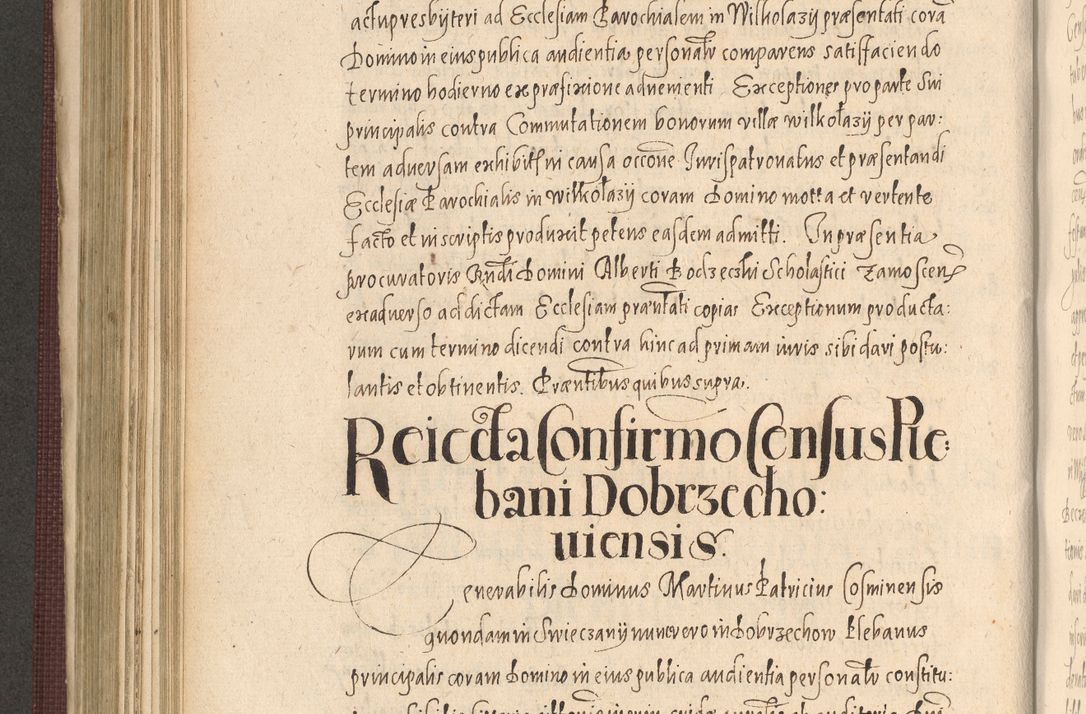 actu presbyteri ad Ecclesiam Parochialem in Wilkolazij præsentati corā
Domino in eius publica audientia personalr comparens satisfaciendo
termino hodierno ex præfixione advenienti Exceptiones pro parte Sui
principalis contra Commutationem bonorum villæ wilkołazij per par:
tem adversam exhibit in causa occone Jurispatronatus et præsentandi
Ecclesiæ Parochialis in wilkołazij coram Domino mota et vertente
facto et in scriptis produxit petens easdem admitti. In præsentia
procuratoris Rndi Domini Alberti Podzeczki Scholastici Zamoscen
ex adverso ad dictam Ecclesiam præntati copiar Exceptionum producta:
rum cum termino dicendi contra hinc ad primam iuris sibi dari postu:
lantis et obtinentis. Præntibus quibus supra.
Reiecta Confirmo Census Ple:
bani Dobrzecho:
uiensis.
Venerabilis Dominus Martinus Patricius Cosminensis
quondam in Swieczanij nunc vero in Dobrzechow Plebanus
principalis coram Domino in eius publica audientia personalr constitu: